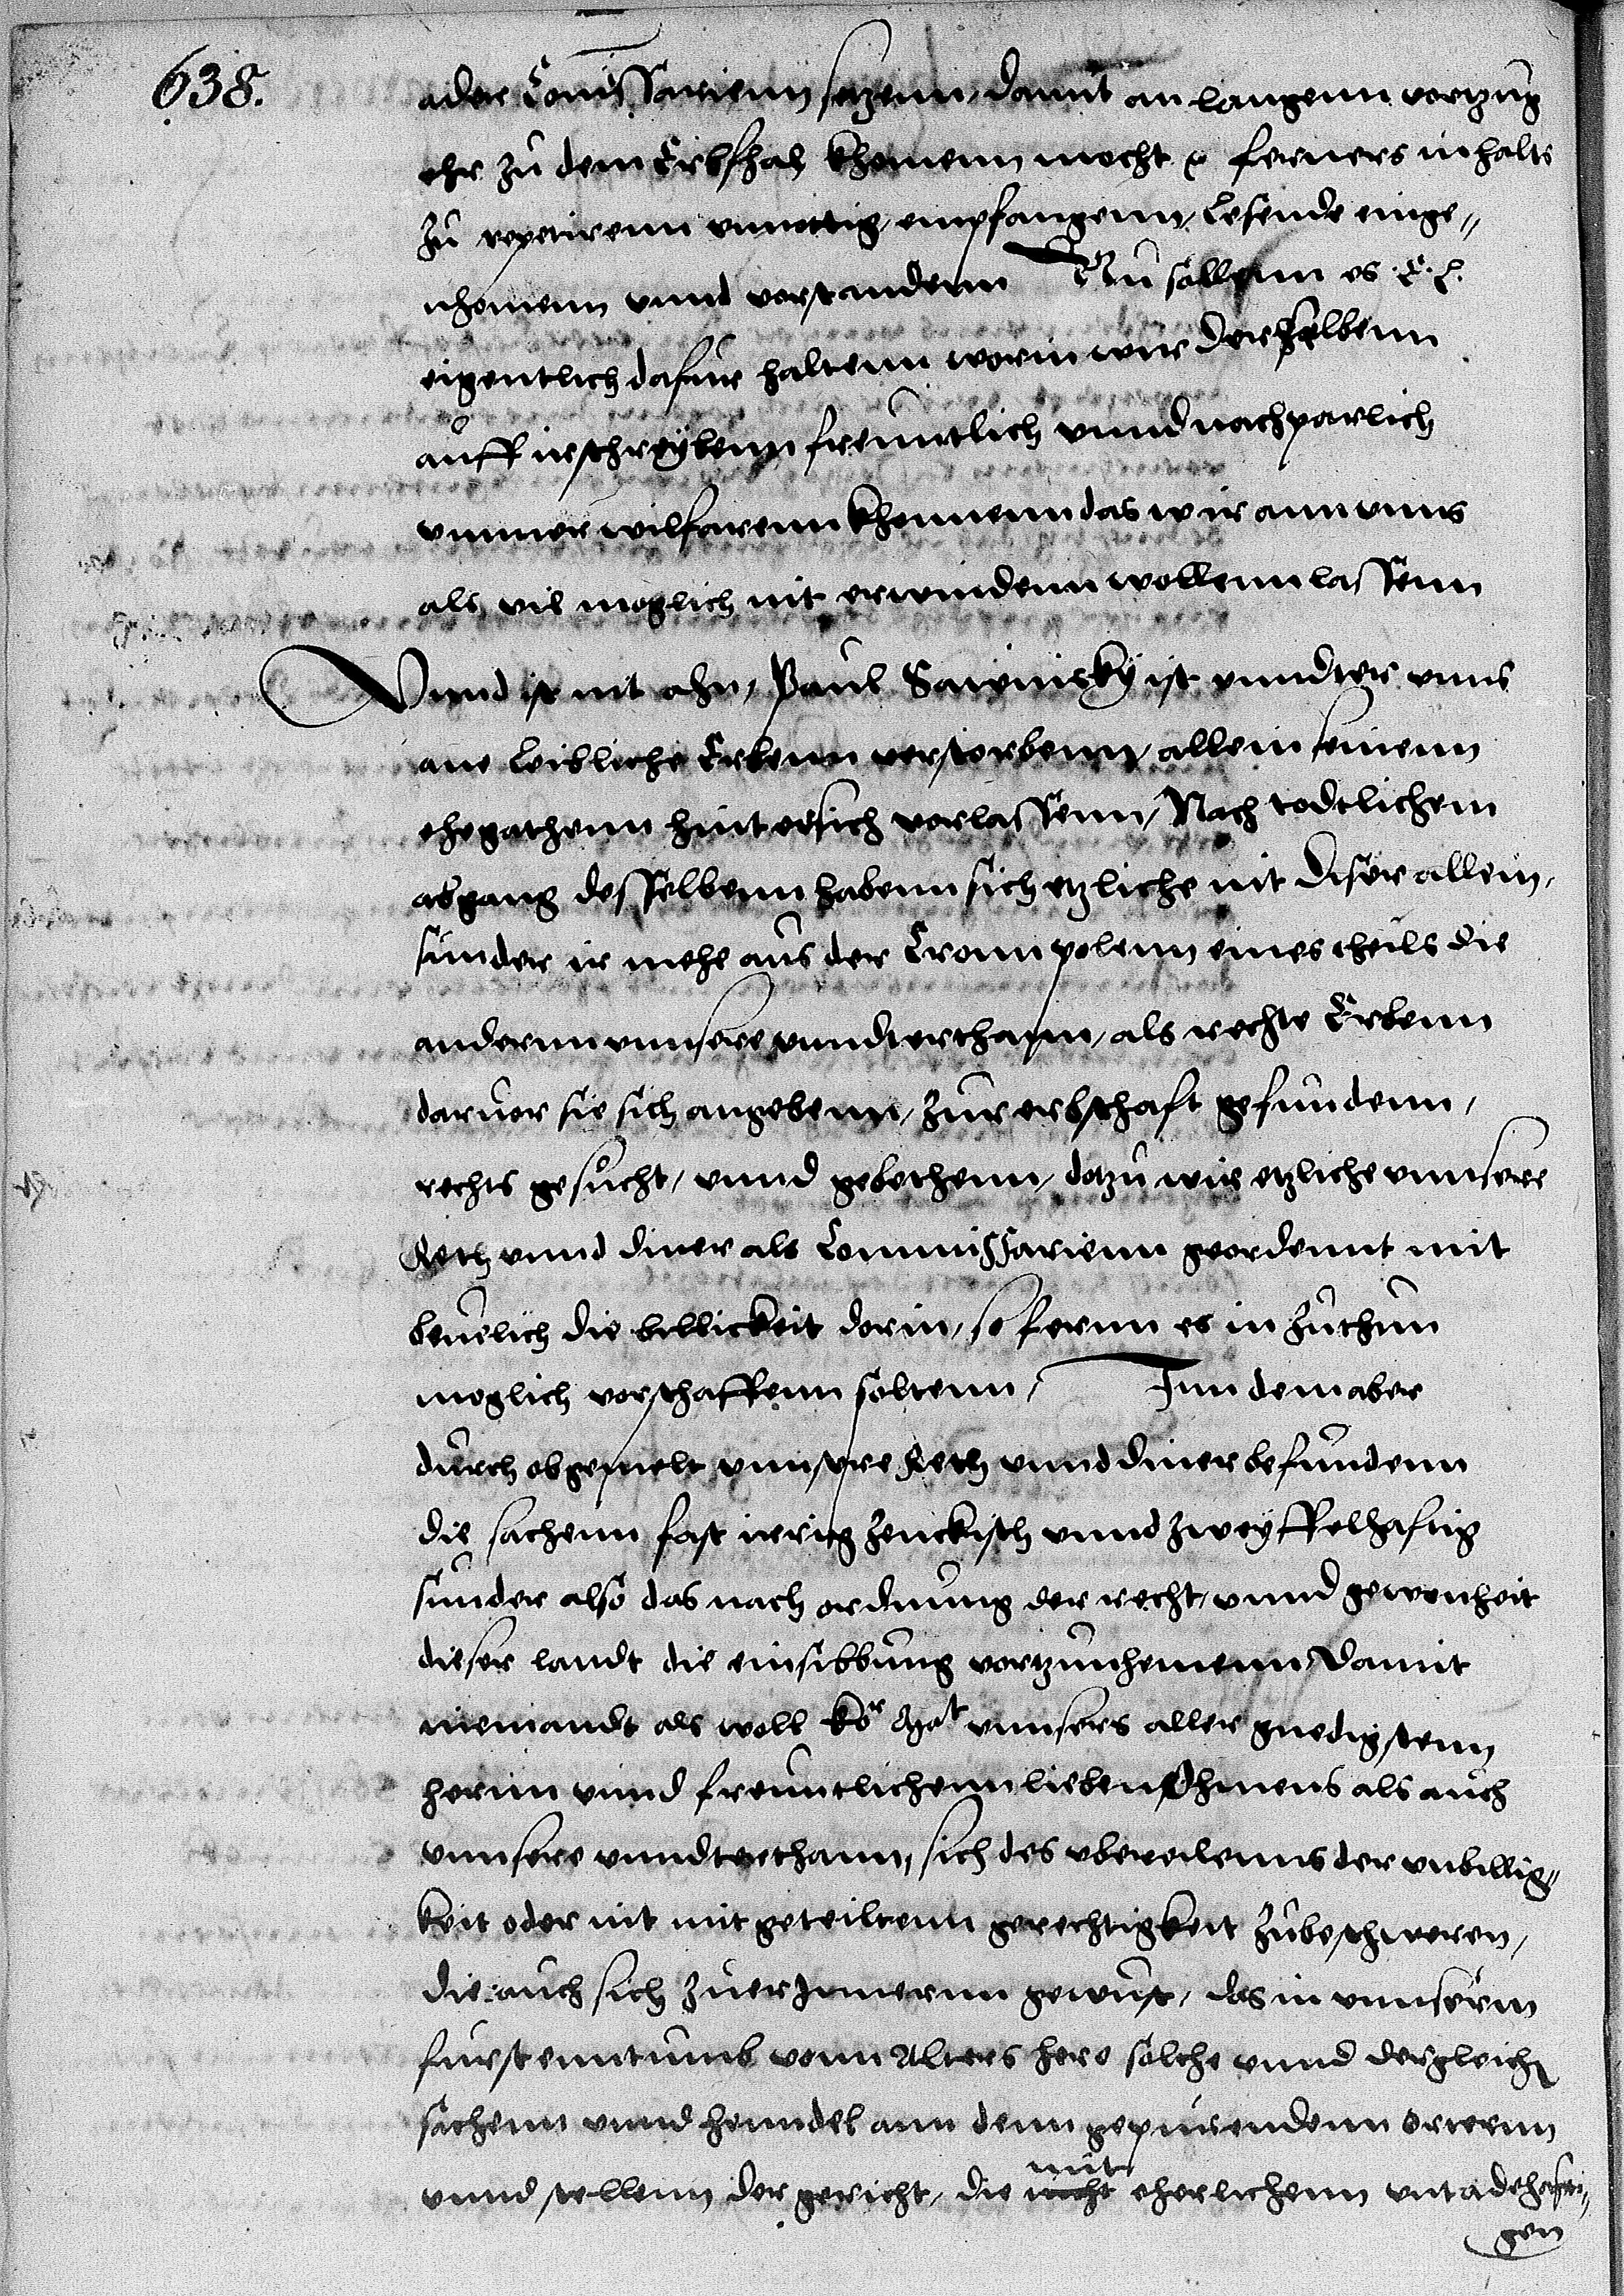 638.
ader Comissarienn setzenn, damit an langenn vortzug
ehr zu dem Erbfhal khomenn mocht etc ferners inhalts
zu repetirenn unnottig, empfangenn, lesende einge„
nhomenn unnd vorstandenn Nu sollenn es E. L.
eigentlich dafur haltenn worin wir derselbenn
auff ir schreybenn freuntlich unnd nachparlich
ummer wilfarenn khonnenn das wir ann unns
als vil moglich nit erwindenn wollenn lassenn
Unnd ist nit ahn, Paul Sawinsky ist unndter unns
ane leibliche Erbenn verstorbenn, allein seinenn
ehegathenn hinter sich vorlassenn, Nach todtlichem
abgang desselbenn habenn sich etzliche nit diser allein,
sunder ir mehe aus der Cronn polenn eines theils die
andernn unnsere unndterthann, als rechte Erbenn
daruor sie sich angebenn, zur erbschaft gefundenn,
rechts gesucht, unnd gebethenn, dotzu wir etzliche unnsere
Reth unnd diner als Commissarienn geordennt mit
beuelich die billickeit dorin, so fernn es in zuthun
moglich vorschaffenn soltenn, Inn dem aber
durch obgemelt unnsere Reth unnd diner befundenn
die sachenn fast irrig zenckisch unnd zweyffelhaftig
sunder also das nach ordnung der recht, unnd gewonheit
dieser landt die einsibbung vortzunhemenn, Damit
niemandt als woll Kor Mat unnsers aller gnedigstenn
hernn unnd freuntlichenn lieben Ohmens als auch
unnsere unndterthann, sich des ubereilenns der unbillig„
keit oder nit mitgeteiltenn gerechtigkeit zubeschweren,
die auch sich zuerJnnernn gewust, das in unnserm
furstenntumb vonn Alters hero solche unnd dergleichen
sachenn unnd henndel ann denn gepurendenn orternn
unnd stellenn der gericht, die mit
nicht eherlichenn untadelhafti„
gen